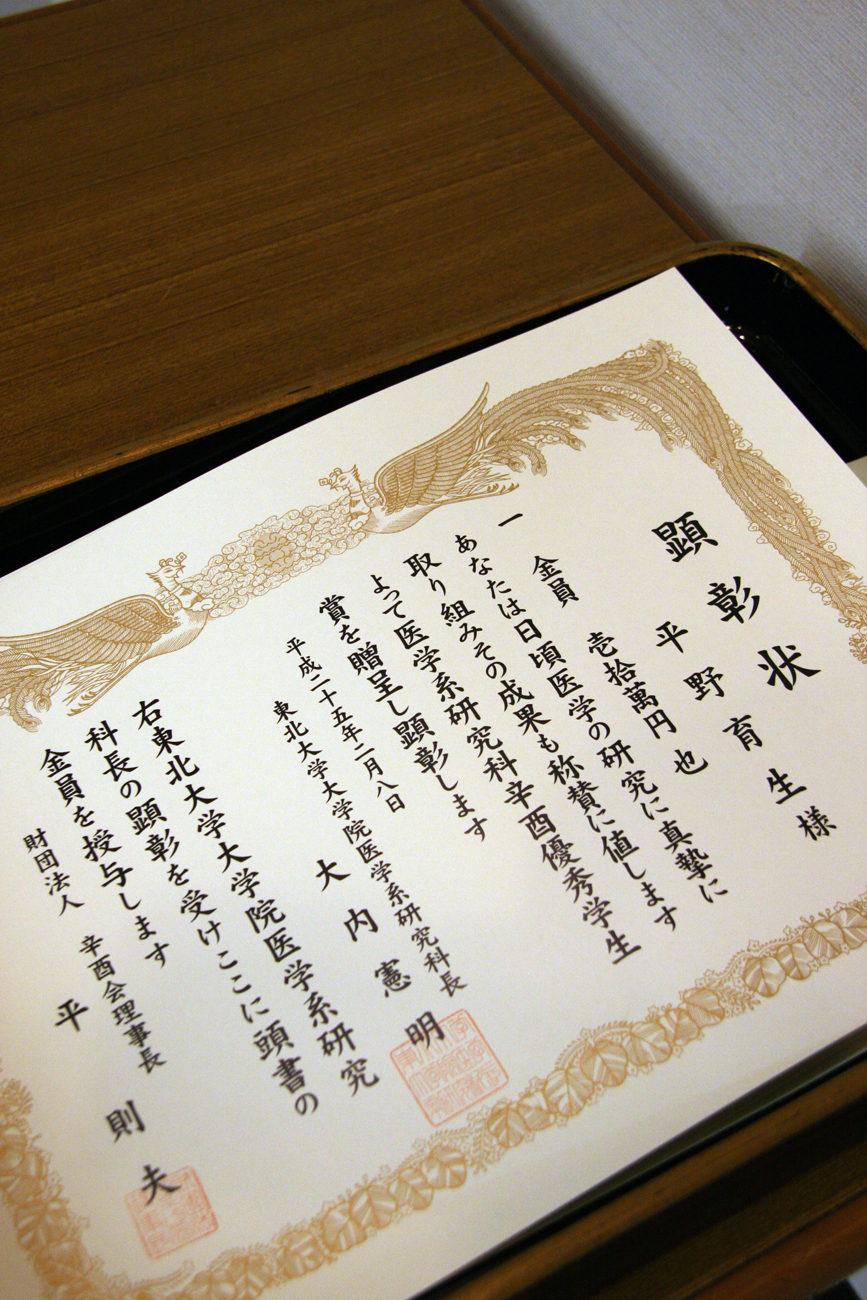 顕彰状
平野育生様
一 金員 壱拾萬円也
あなたは日頃医学の研究に真摯に
取り組みその成果も称賛に値します
よって医学系研究科辛酉優秀学生
賞を贈呈し顕彰します
平成二十五年二月八日
東北大学大学院医学系研究科長
大内憲明
右東北大学大学院医学系研究
科長の顕彰を受けここに頭書の
金員を授与します
財団法人 辛酉会理事長
平則夫